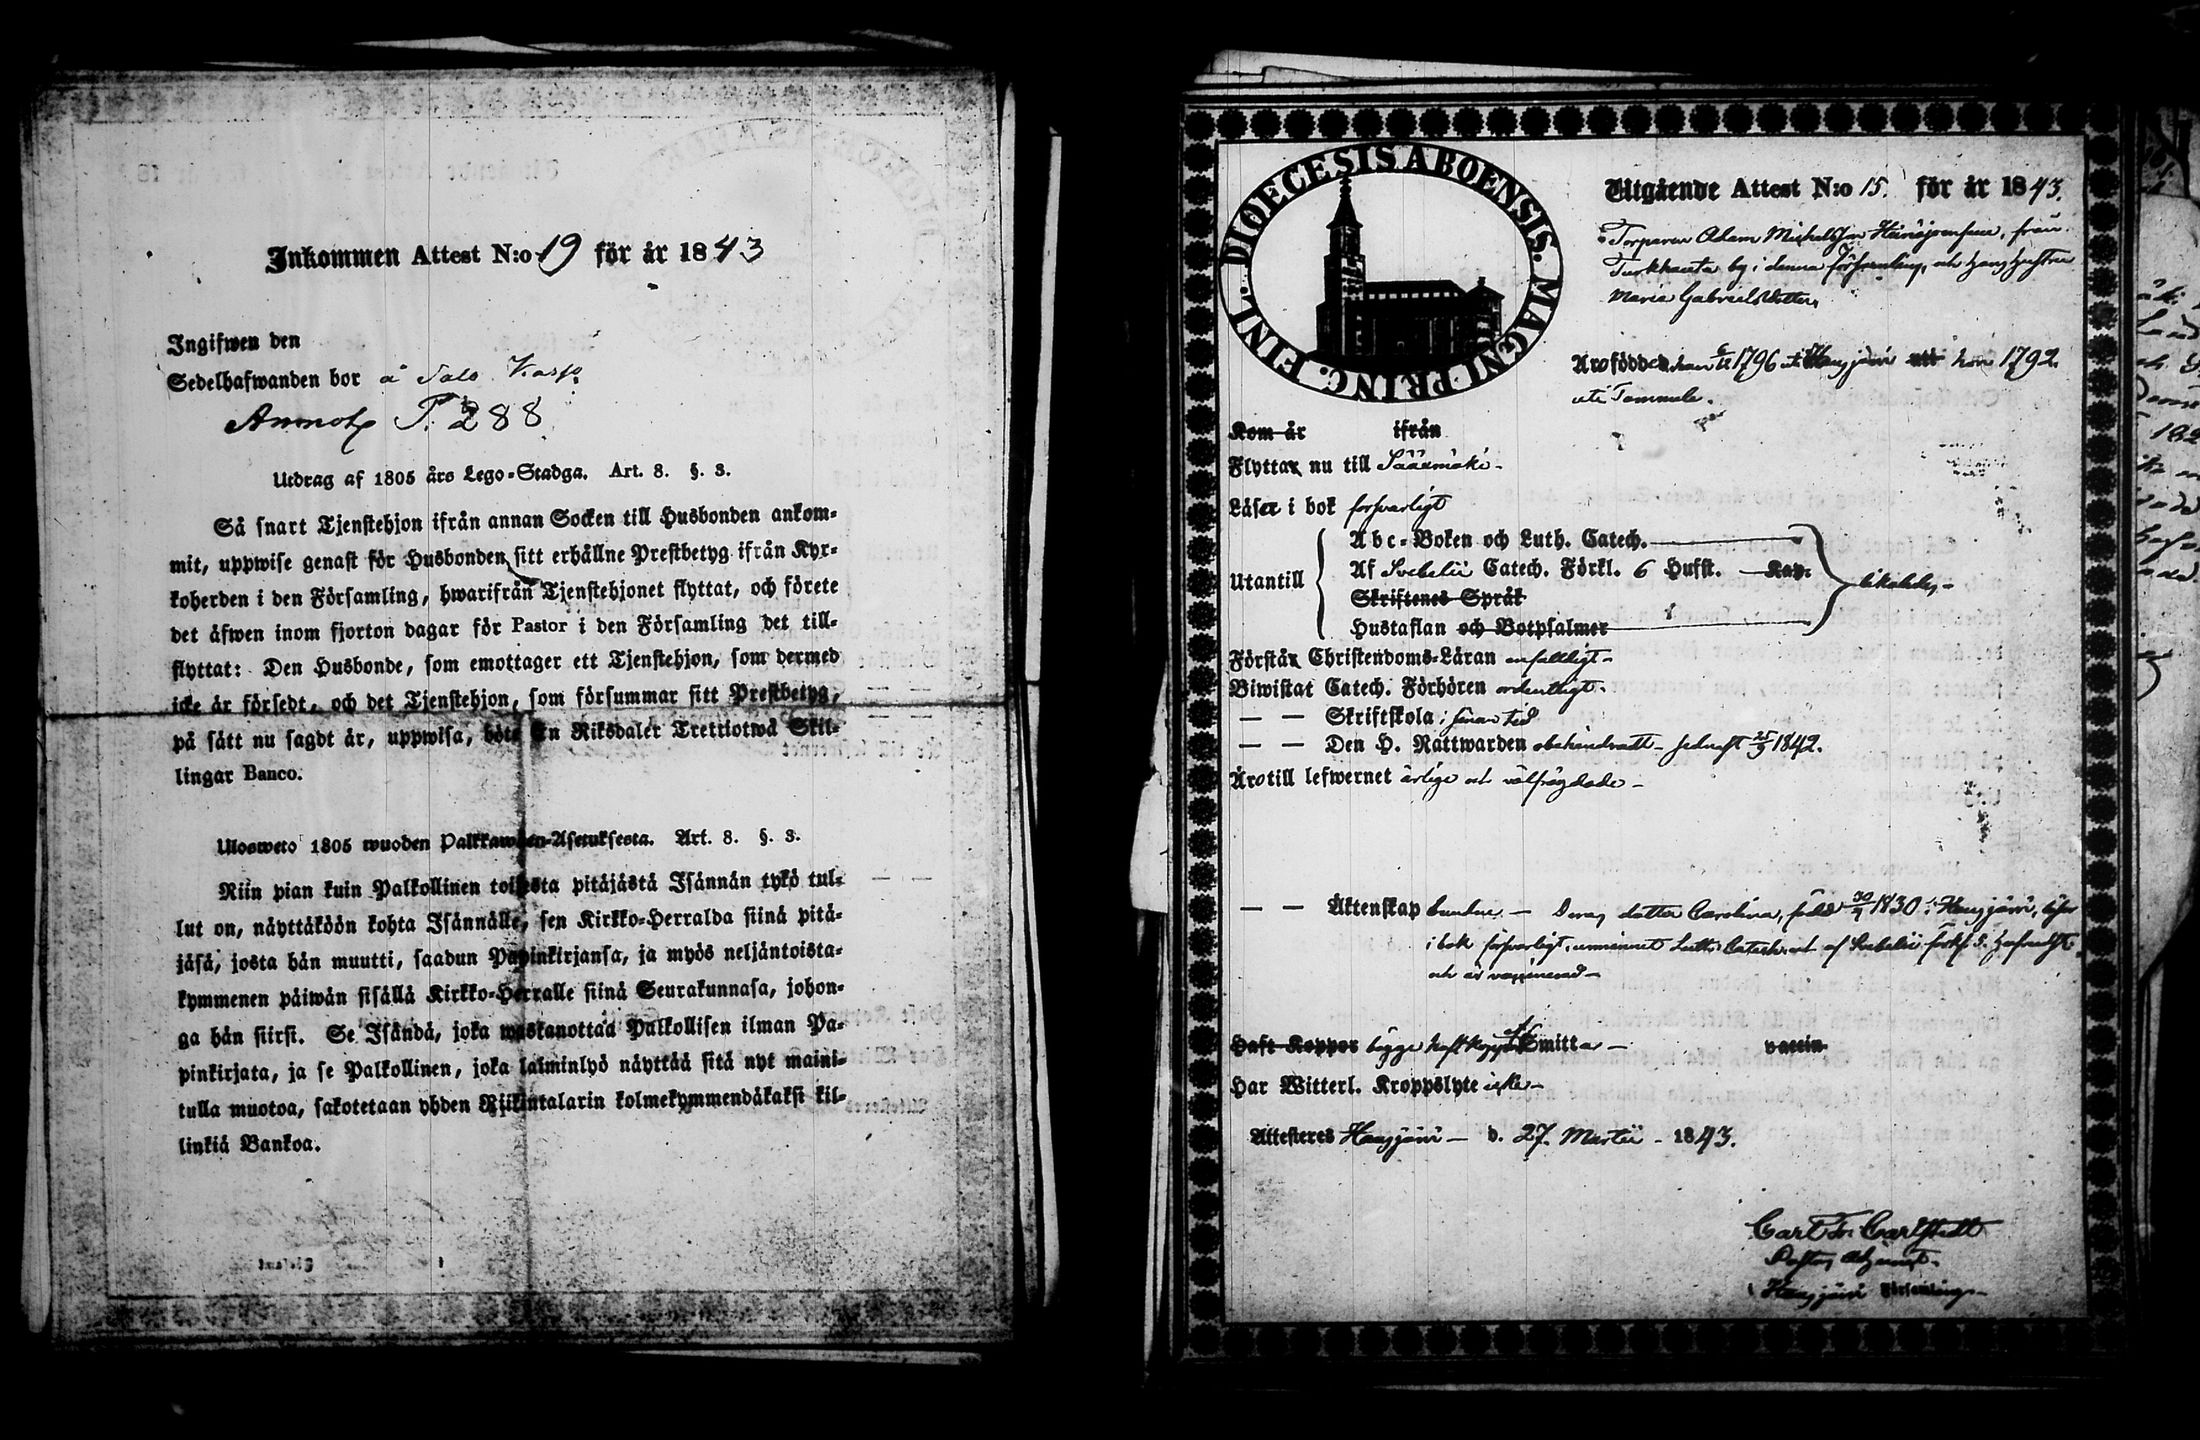 Inkommen Attest N:o 19 för år 1843
Ingifwen den
Sedelhafwanden bor å
P. 288
Utdrag af 1805 års Lego-Stadga. Art. 8. §. 3.
Så snart Tjenstehjon ifrån annan Socken till Husbonden ankom-
mit, uppwise genast för Husbonden sitt erhållne Prestbetyg ifrån Kyr-
koherden i den Församling, hwarifrån Tjenstehjonet flyttat, och förete
det äfwen inom fjorton dagar för Pastor i den Församling det till-
flyttat: Den Husbonde, som emottager ett Tjenstehjon, som dermed
icke är försedt, och det Tjenstehjon, som försummar sitt Prestbetyg,
på sätt nu sagdt är, uppwisa, böte En Riksdaler Trettiotwå Skil-
lingar Banco.
Ulosweto 1805 wuoden Palkkawäen-Asetuksesta. Art. 8. §. 3.
Niin pian kuin Palkollinen toisesta pitäjästä Isännän tykö tul-
lut on, näyttäköön kohta Isännälle, sen Kirkko-Herralda siinä pitä-
jäsä, josta hän muutti, saadun Papinkirjansa, ja myös neljäntoista-
kymmenen päiwän sisällä Kirkko-Herralle siinä Seurakunnasa, johon-
ga hän siirsi. Se Isändä, joka wastanottaa Palkollisen ilman Pa-
pinkirjata, ja se Palkollinen, joka laiminlyö näyttää sitä nyt maini-
tulla muotoa, sakotetaan yhden Riikintalarin kolmekymmendäkaksi kil-
linkiä Bankoa.
DIOECESIS ABOENSIS. MAGNI PRINC. FINL.
Utgående Attest N:o 15. för år 1843.
Torparen Adam Michelsson från
by i denna Församling, och hans hustru
Maria Gabrielsdotter,
Äro födde, han 1796 uti Hausjärvi hon 1792
uti Tammela.
Kom år ifrån
Flyttar nu till Sääxmäki
Läser i bok försvarligt
Abc-Boken och Luth. Catech.
Utantill Af Svebelii Catech. Förkl. 6 Hufst. Kap.
Skriftenes Språk
Hustaflan och Botpsalmer
Förstår Christendoms-Läran enfaldigt
Biwistat Catech. Förhören ordentligt.
— — Skriftskola i sinan tid
— — Den H. Nattwarden obehindradt sednast 25/9 1842.
Äro till lefwernet ärlige och välfrägdade
— — Äktenskap bundne — Deras dotter Carolina, född 1830 i Hausjärvi, läser
i bok försvarligt, utminnes Luth. Catech. och af Svebelii förkl. 5. hufvudst.
och är vaccinerad
Haft Koppor bägge haft koppor Smitta vaccin
Har Witterl. Kroppslyte icke
Attesteres Hausjärvi d. 27. Martii 1843.
Carl Fr. Carlstedt
Pastors Adjunct.
i Hausjärvi Församling